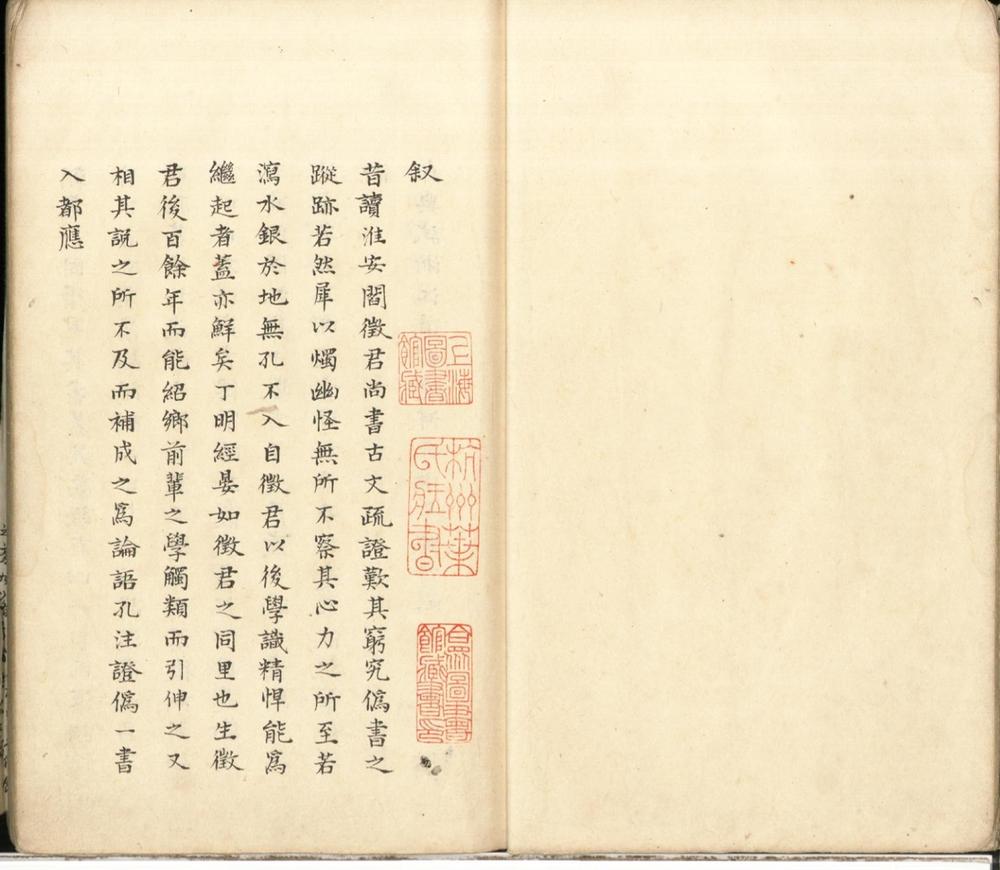 叙
昔讀淮安閻徵君尚書古文疏證歎其窮究僞書之
蹤跡若然犀以燭幽怪無所不察其心力之所至若
瀉水銀於地無孔不入自徵君以後學識精悍能爲
繼起者蓋亦鮮矣丁明經晏如徵君之同里也生徵
君後百餘年而能紹鄉前輩之學觸類而引伸之又
相其説之所不及而補成之爲論語孔注證僞一書
入都應
上海
圖書
館藏
杭州葉
氏藏書
合眾圖書
館藏書印